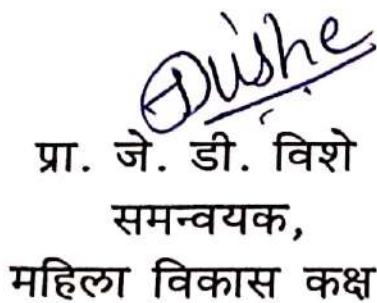 प्रा. जे. डी. विशे
समन्वयक,
महिला विकास कक्ष